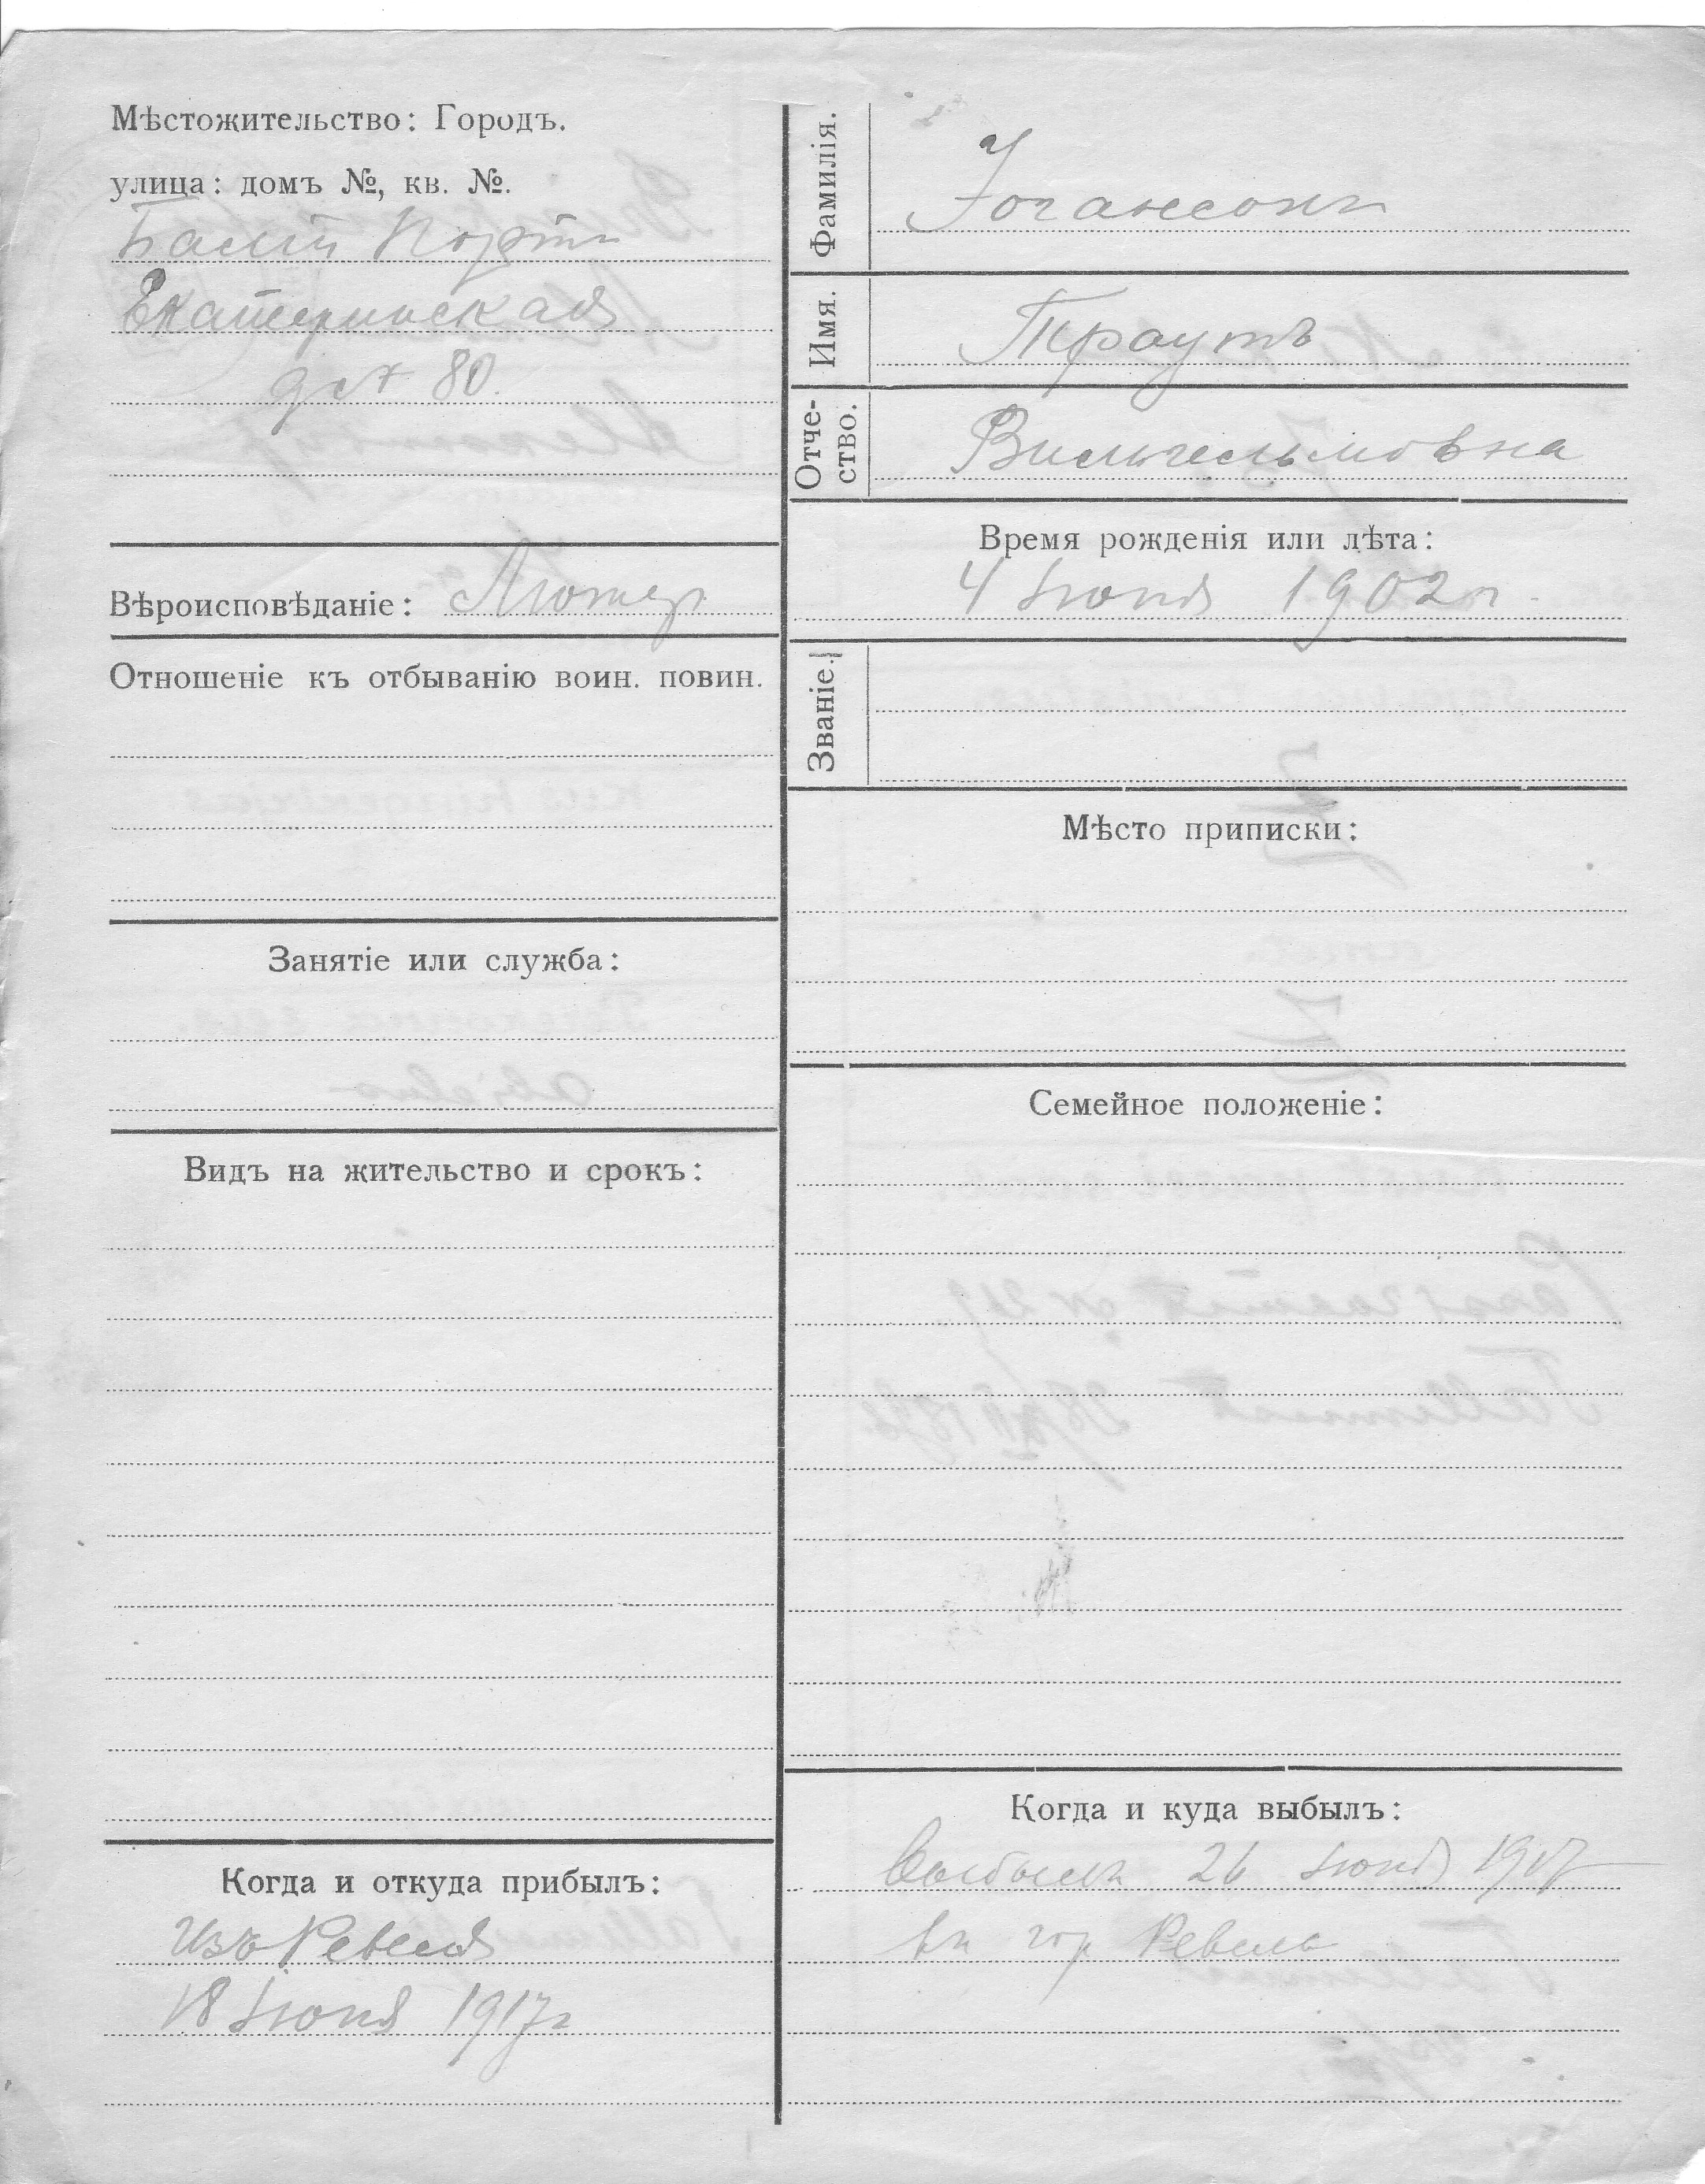 Мѣстожительство: Городъ.
улица: домъ №, кв. №.
Балтій Портъ
Екатеринская
80.
Вѣроисповѣданіе: Лютер
Отношеніе къ отбыванію воин. повин.
Занятіе или служба:
Видъ на жительство и срокъ:
Когда и откуда прибылъ:
Изъ Ревеля
18 Іюня 1917г
Фамилія. Іогансонъ
Имя. Траутъ
Отче-
ство. Вильгельмовна
Время рожденія или лѣта:
4 Іюня 1902 г.
Званіе.
Мѣсто приписки:
Семейное положеніе:
Когда и куда выбылъ:
Выбыла 26 Іюня 1917
въ гор Ревель